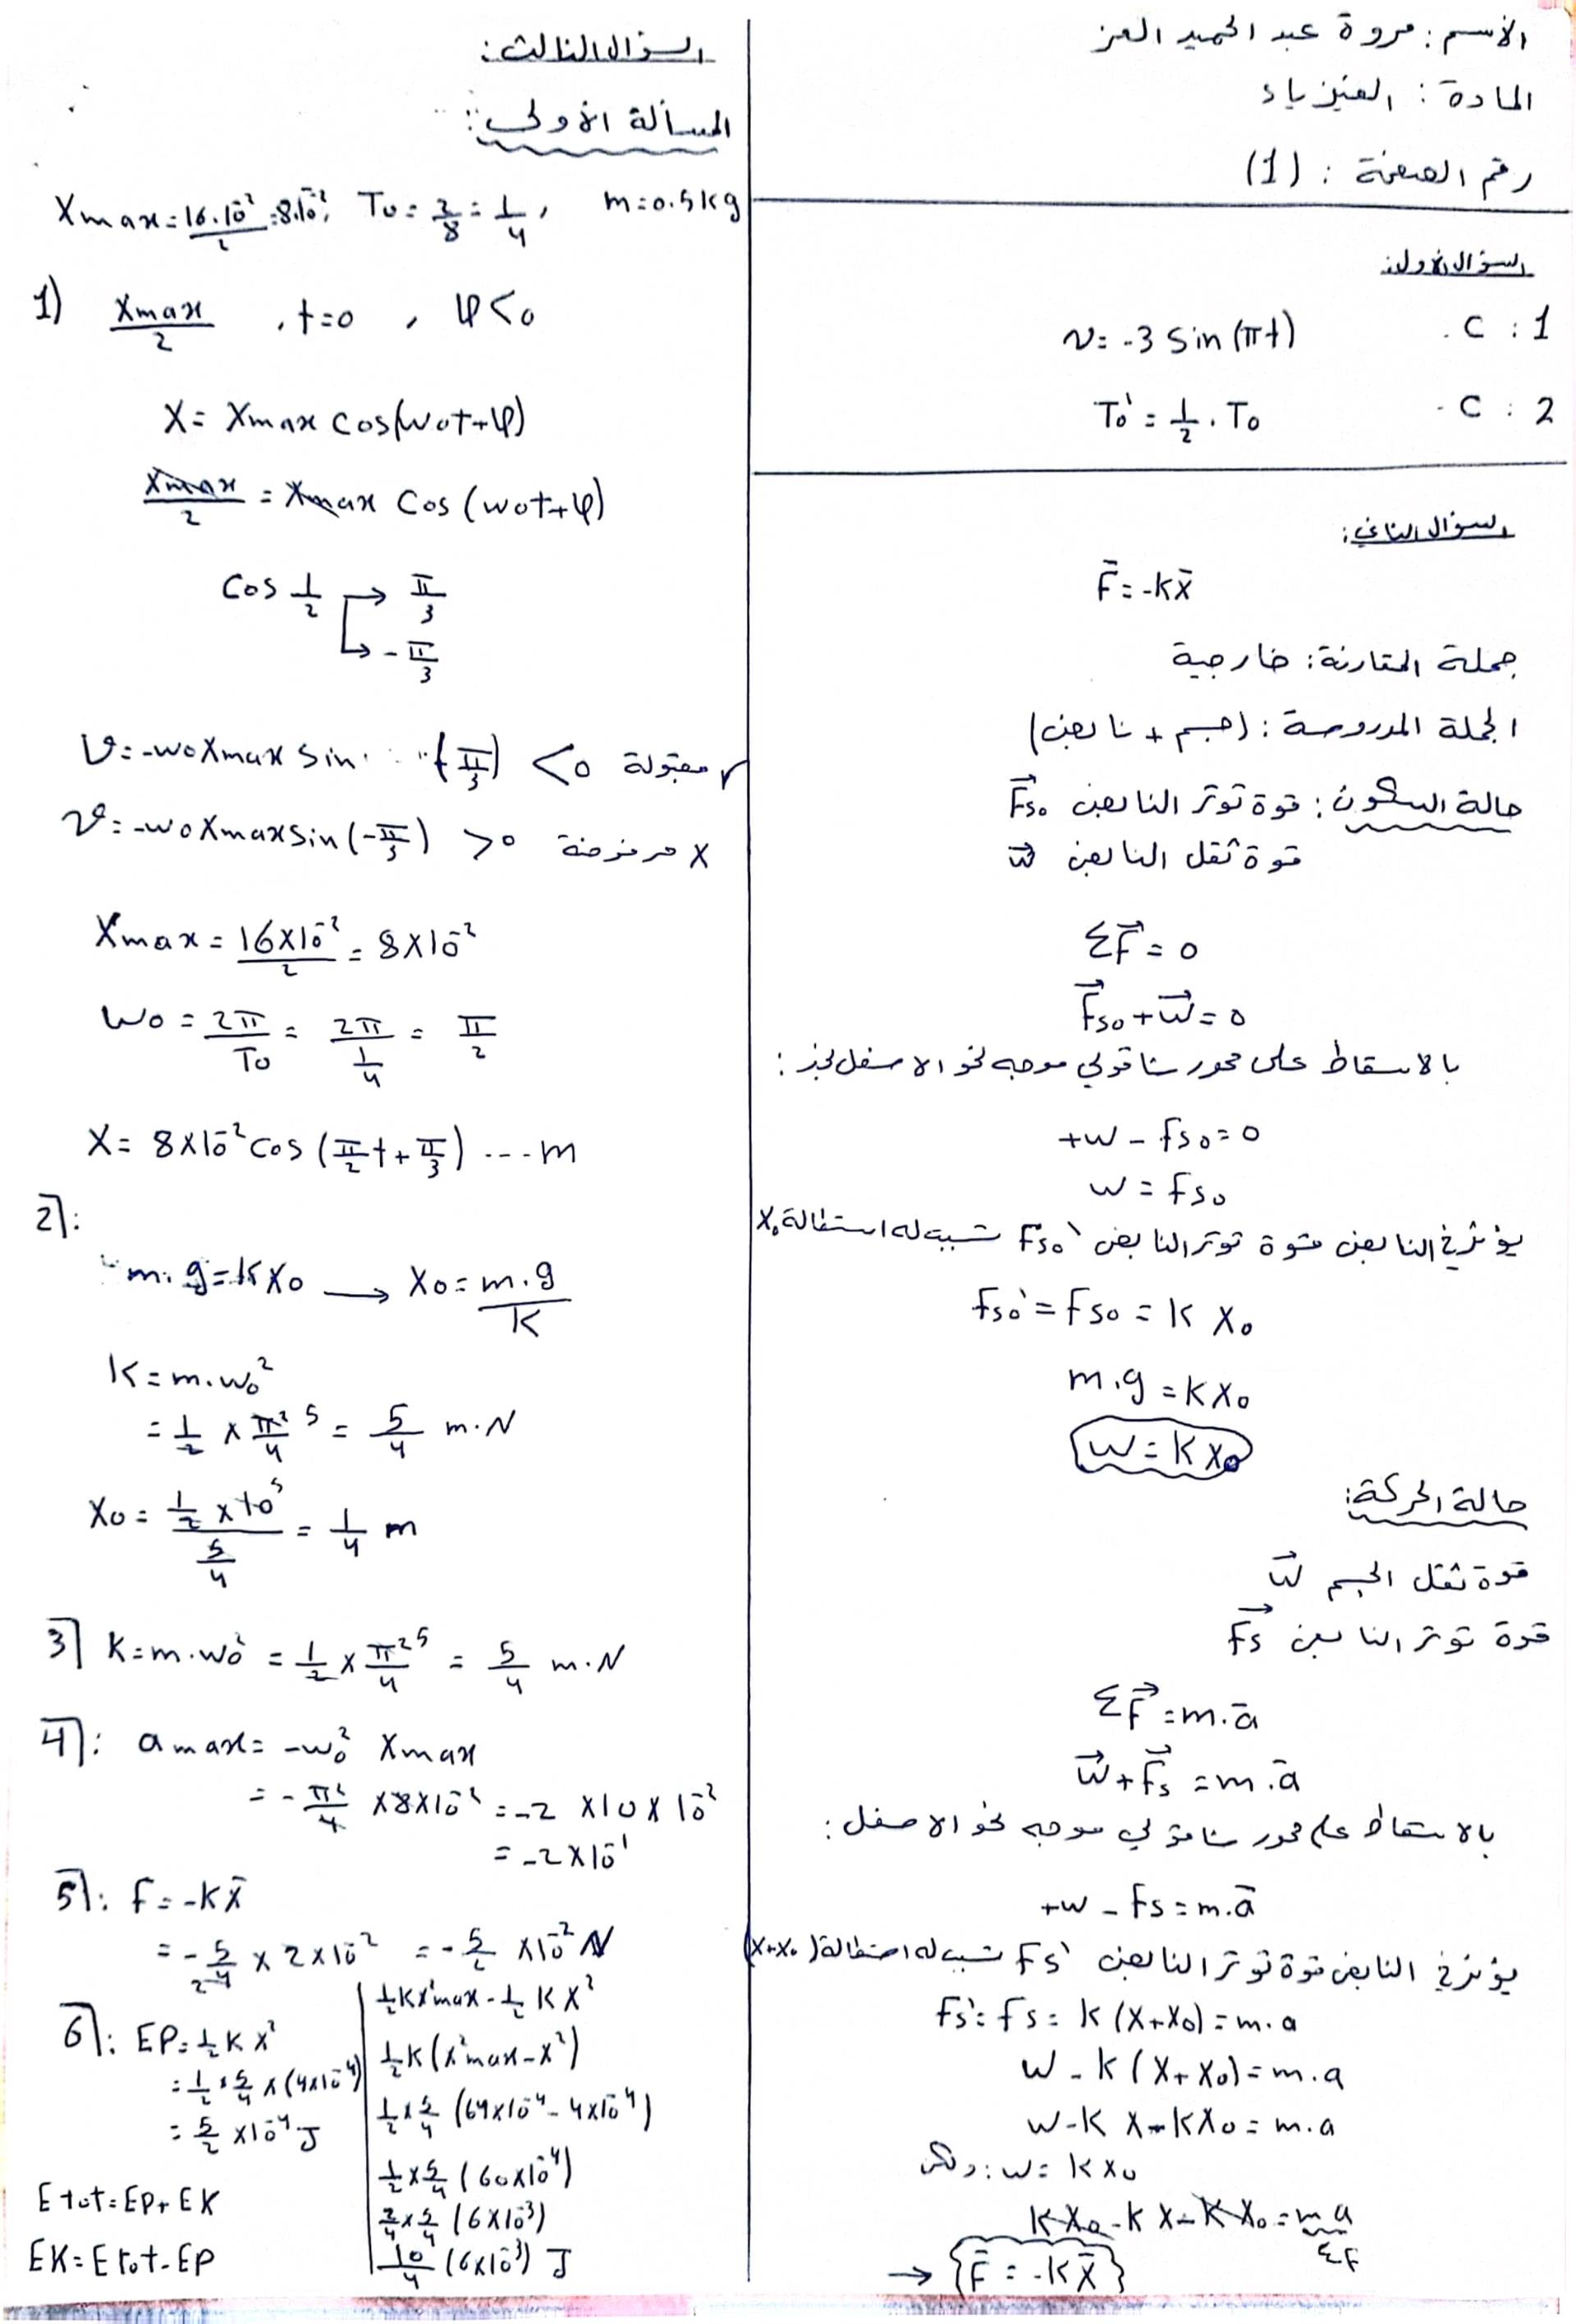 الاسم : مروة عبد الحميد العز
المادة : الفيزياء
رقم الصفحة : (1)
السؤال الأول:
1 : C . v = -3 sin(πt)
2 : C . T₀' = 1/2 . T₀
السؤال الثاني:
F̄ = -kx̄
جملة المقارنة : خارجية
الجملة المدروسة : (جسم + نابض)
حالة السكون : قوة توتر النابض F⃗s₀
قوة ثقل النابض w⃗
ΣF⃗ = 0
F⃗s₀ + w⃗ = 0
بالاسقاط على محور شاقولي موجه نحو الاسفل نجد :
+w - Fs₀ = 0
w = Fs₀
يؤثر في النابض قوة توتر النابض Fs₀' تسبب له استطالة x₀
Fs₀' = Fs₀ = k x₀
m.g = k x₀
w = k x₀
حالة الحركة:
قوة ثقل الجسم w⃗
قوة توتر النابض F⃗s
ΣF⃗ = m.ā
w⃗ + F⃗s = m.ā
بالاسقاط على محور شاقولي موجه نحو الاسفل :
+w - Fs = m.ā
يؤثر في النابض قوة توتر النابض Fs' تسبب له استطالة (x+x₀)
Fs' = Fs = k (x+x₀) = m.a
w - k (x + x₀) = m.a
w - k x - kx₀ = m.a
ولكن : w = k x₀
kx₀ - k x - k x₀ = m a
ΣF
→ {F̄ = -kx̄}
السؤال الثالث:
المسألة الأولى:
Xmax = 16.10⁻²/2 = 8.10⁻², T₀ = 2/8 = 1/4 , m = 0.5 kg
1) Xmax/2 , t=0 , φ<0
X = Xmax cos(w₀t+φ)
Xmax/2 = Xmax cos(w₀t+φ)
cos 1/2 → π/3
→ -π/3
v = -w₀ Xmax sin (π/3) < 0 مقبولة ✓
v = -w₀ Xmax sin(-π/3) > 0 مرفوضة X
Xmax = 16×10⁻²/2 = 8×10⁻²
w₀ = 2π/T₀ = 2π/(1/4) = π/2
X = 8×10⁻² cos (π/2 t + π/3) --- m
2]:
m.g = k x₀ → x₀ = m.g/k
k = m.w₀²
= 1/2 × π²/4 5 = 5/4 m.N
x₀ = (1/2 × 10 5)/(5/4) = 1/4 m
3] k = m.w₀² = 1/2 × π²/4 5 = 5/4 m.N
4]: a max = -w₀² Xmax
= -π²/4 × 8×10⁻² = -2 ×10 × 10⁻²
= -2×10⁻¹
5]: F = -kx̄
= -5/4 × 2×10⁻² = -5/2 ×10⁻² N
6]: EP = 1/2 k x²
= 1/2 × 5/4 × (4×10⁻⁴)
= 5/2 ×10⁻⁴ J
E tot = EP + EK
EK = E tot - EP
1/2 k x²max - 1/2 k x²
1/2 k (x²max - x²)
1/2 × 5/4 (64×10⁻⁴ - 4×10⁻⁴)
1/2 × 5/4 (60×10⁻⁴)
2/4 × 5/4 (6×10⁻³)
10/4 (6×10⁻³) J